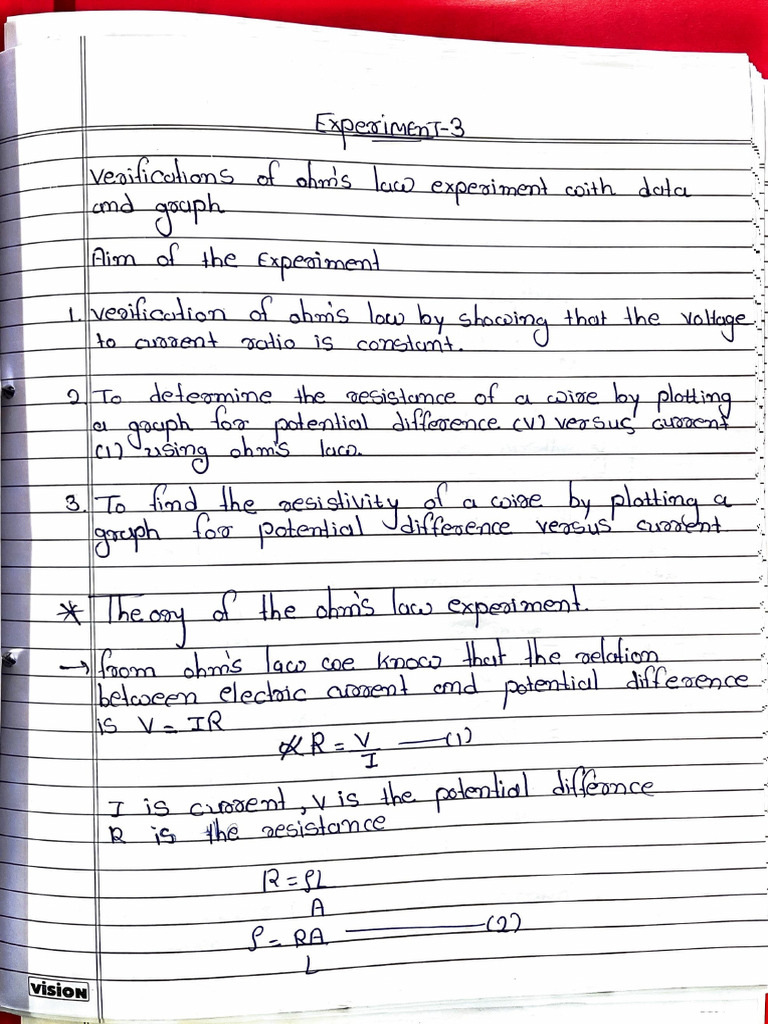 Experiment-3
Verifications of ohm's law experiment with data
and graph
Aim of the Experiment
1. Verification of ohm's law by showing that the voltage
to current ratio is constant.
2. To determine the resistance of a wire by plotting
a graph for potential difference (V) versus current
(I) using ohm's law.
3. To find the resistivity of a wire by plotting a
graph for potential difference versus current
* Theory of the ohm's law experiment.
→ from ohm's law we know that the relation
between electric current and potential difference
is V = IR
R = V/I —(1)
I is current, V is the potential differnce
R is the resistance
R = ρL/A
ρ = RA/L —(2)
vision